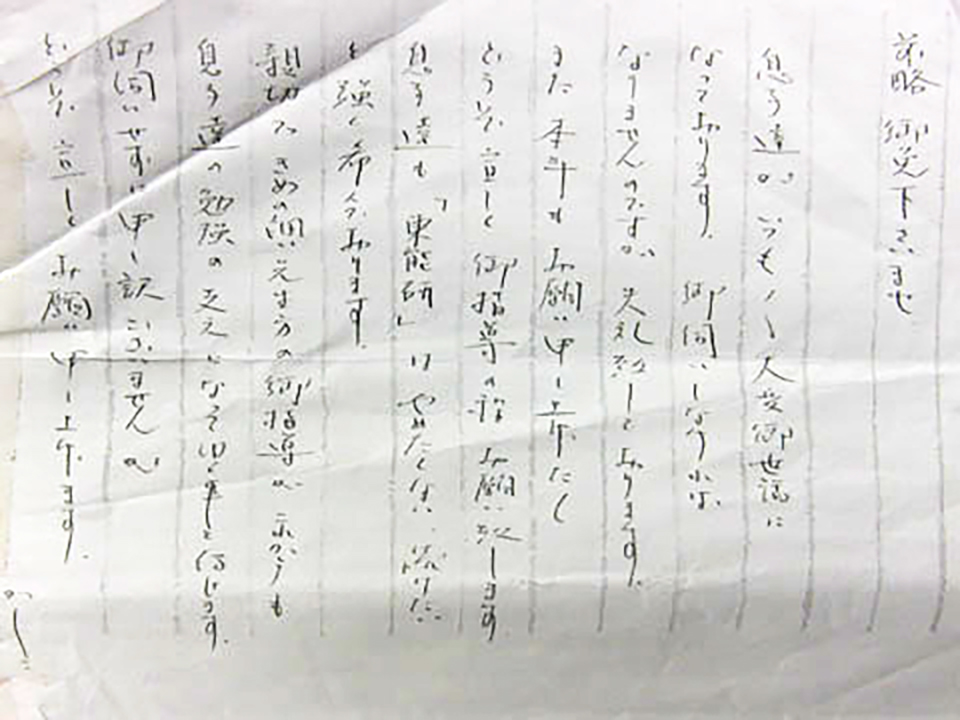 前略 御免下さいませ
息子達が いつも〱大変御世話に
なっております。 御伺いしなければ
なりませんのですが 失礼致しております。
また 本年も お願い申し上げたく
どうぞ 宜しく 御指導の程 お願い致します
息子達も「東能研」は やめたくない、続けた
と強く希んでおります。
親切で きめの細かい先生方の御指導が これからも
息子達の勉強の支えになってゆく事と信じます。
御伺いせずに申し訳ございませんが
どうぞ 宜しく お願い申し上げます。
かしこ